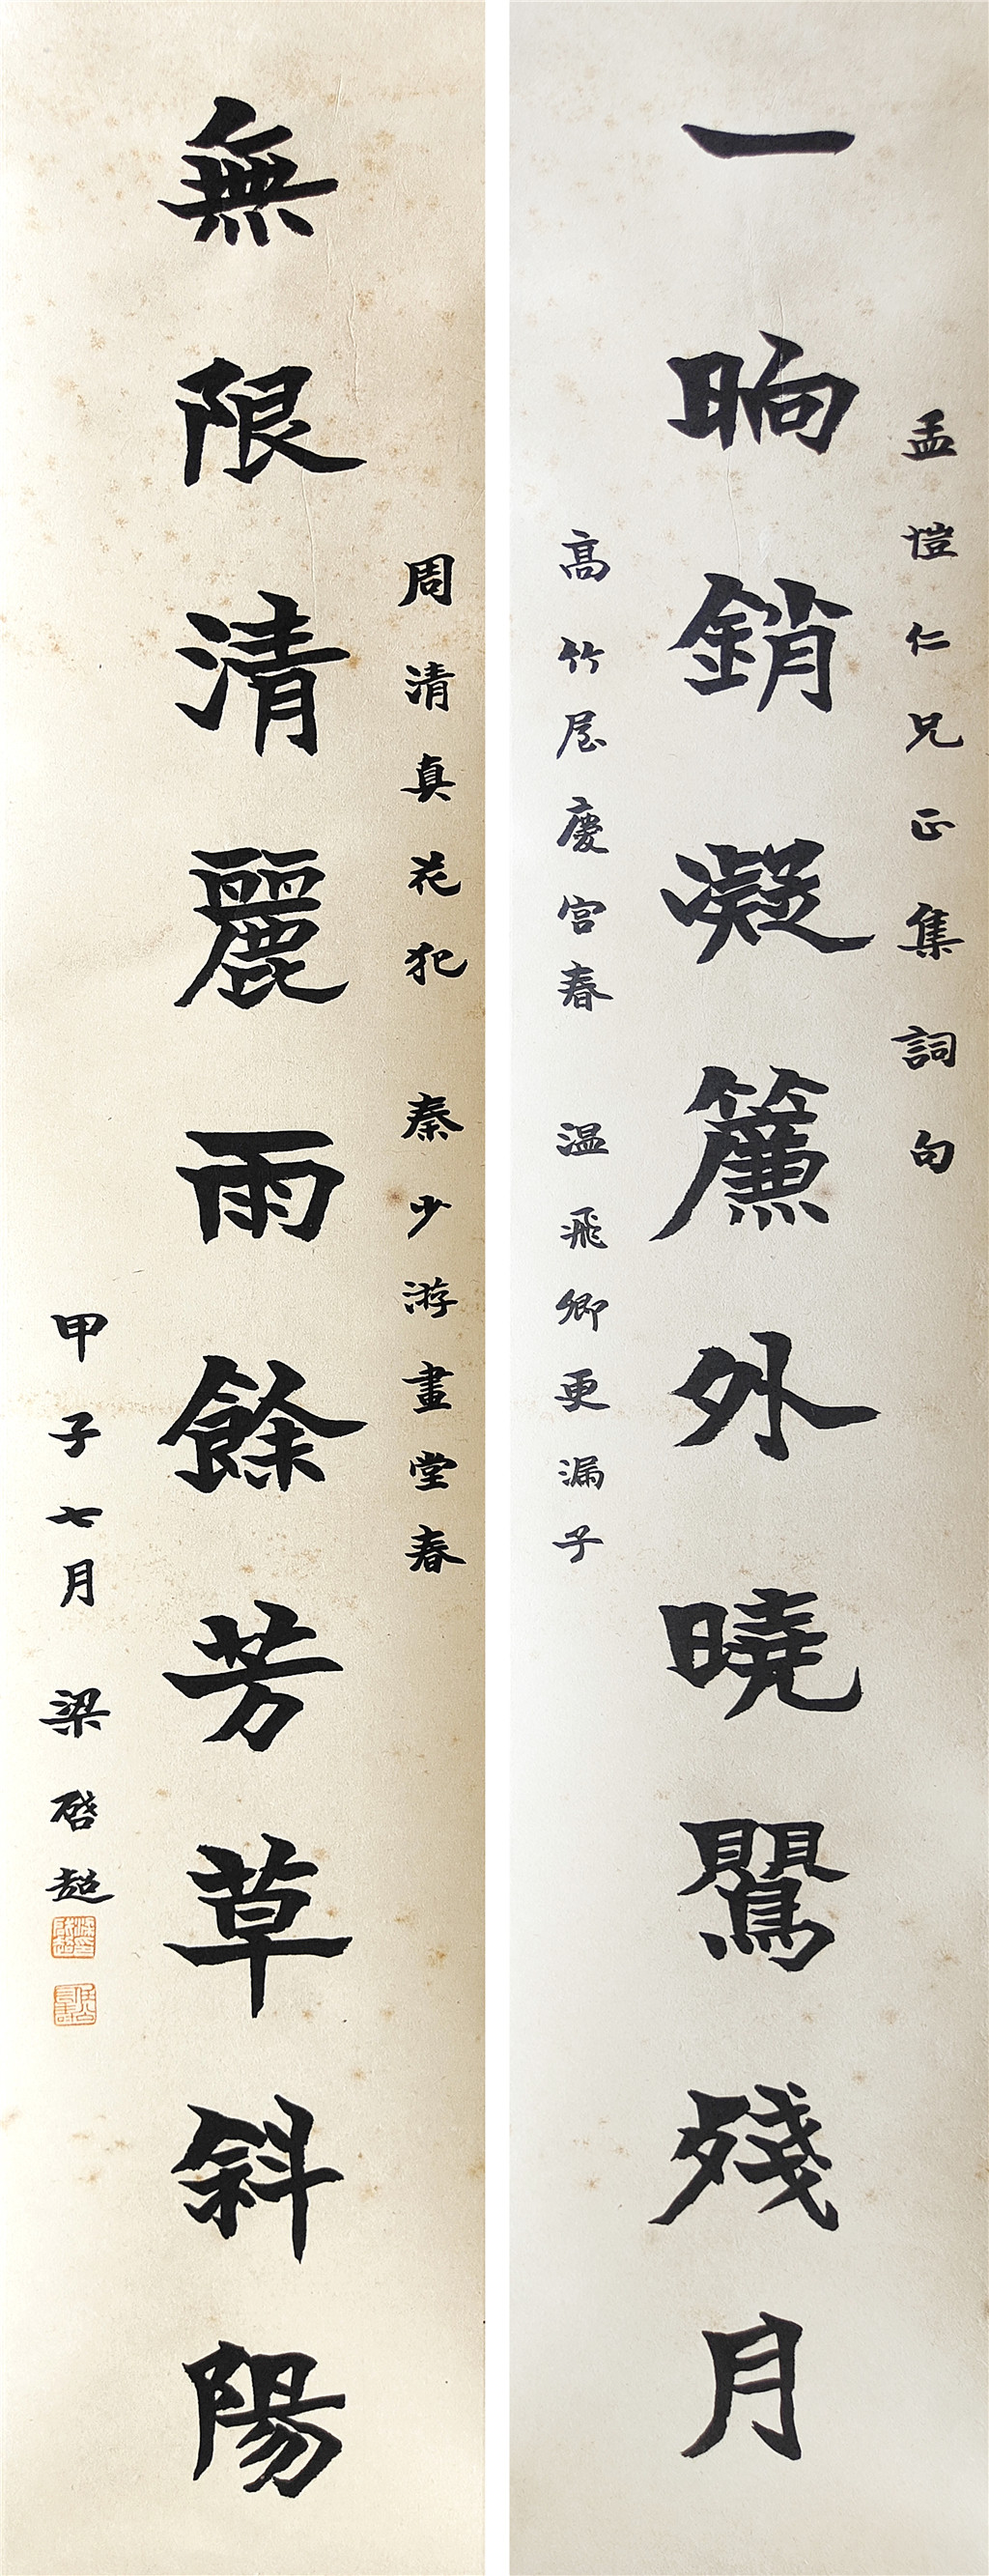 孟愷仁兄正集詞句
一晌銷凝簾外曉鸎殘月
高竹屋慶宫春 温飛卿更漏子
周清真花犯 秦少游畫堂春
無限清麗雨餘芳草斜陽
甲子七月 梁啓超